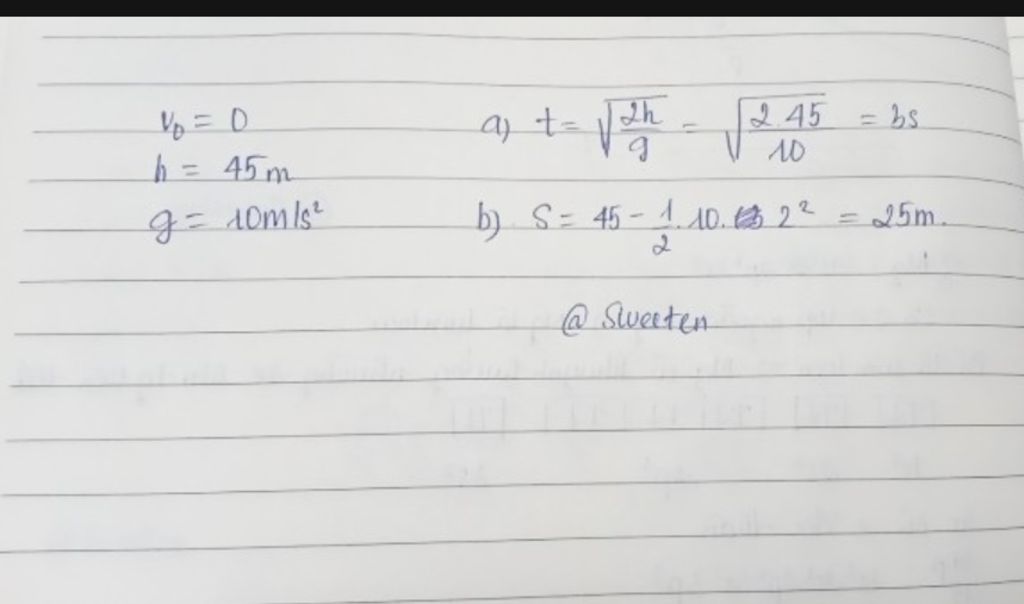 v₀ = 0
h = 45m
g = 10m/s²
a) t = √(2h/g) = √(2.45/10) = 3s
b) S = 45 - 1/2.10. 2² = 25m.
@ Sweeten